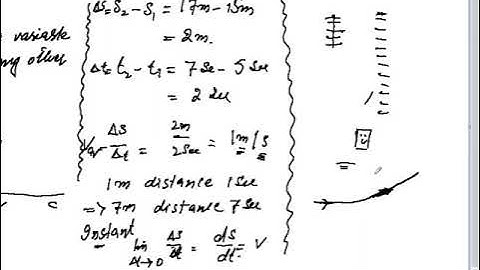 variable
any other
Δs=S₂-S₁ = 17m-15m
= 2m.
Δt= t₂-t₁ = 7 Sec - 5 Sec
= 2 Sec
Vav Δs/Δt = 2m/2Sec = 1m/s
1m distance 1 Sec
=> 7m distance 7 Sec
Instant
lim Δt→0 Δs/Δt = ds/dt = V